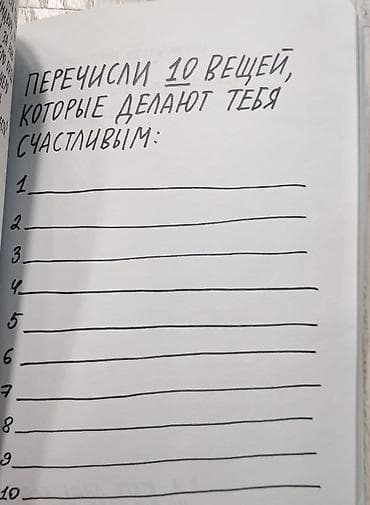 ПЕРЕЧИСЛИ 10 ВЕЩЕЙ,
КОТОРЫЕ ДЕЛАЮТ ТЕБЯ
СЧАСТЛИВЫМ:
1
2
3
4
5
6
7
8
9
10